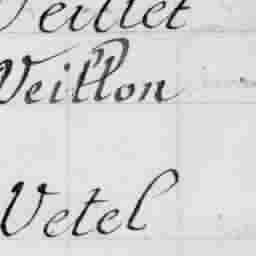 Veillet
Veillon
Vetel